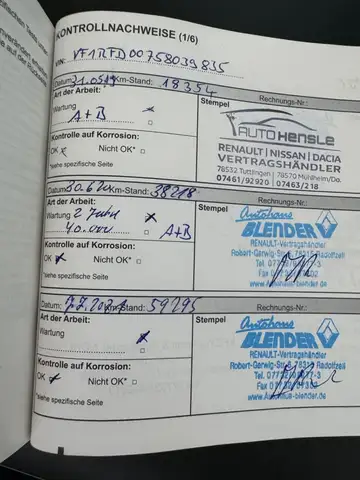 KONTROLLNACHWEISE (1/6)
VIN: VF1RFD00758039835
Datum: 31.05.19 Km-Stand: 18354
Rechnungs-Nr.:
Art der Arbeit:
Stempel
Wartung
A+B
AUTO HENSLE
RENAULT | NISSAN | DACIA
VERTRAGSHÄNDLER
78532 Tuttlingen | 78570 Mühlheim/Do.
07461/92920 | 07463/218
Kontrolle auf Korrosion:
OK Nicht OK*
*siehe spezifische Seite
Datum: Km-Stand: 38218
Rechnungs-Nr.:
Art der Arbeit:
Stempel
Wartung 2 Jahre
40.000
A+B
Autohaus
BLENDER
RENAULT-Vertragshändler
Robert-Gerwig-Str. 6 78315 Radolfzell
Kontrolle auf Korrosion:
OK Nicht OK*
*siehe spezifische Seite
Datum: Km-Stand: 59295
Rechnungs-Nr.:
Art der Arbeit:
Stempel
Wartung
Autohaus
BLENDER
RENAULT-Vertragshändler
Robert-Gerwig-Str. 6 78315 Radolfzell
Kontrolle auf Korrosion:
OK Nicht OK*
*siehe spezifische Seite